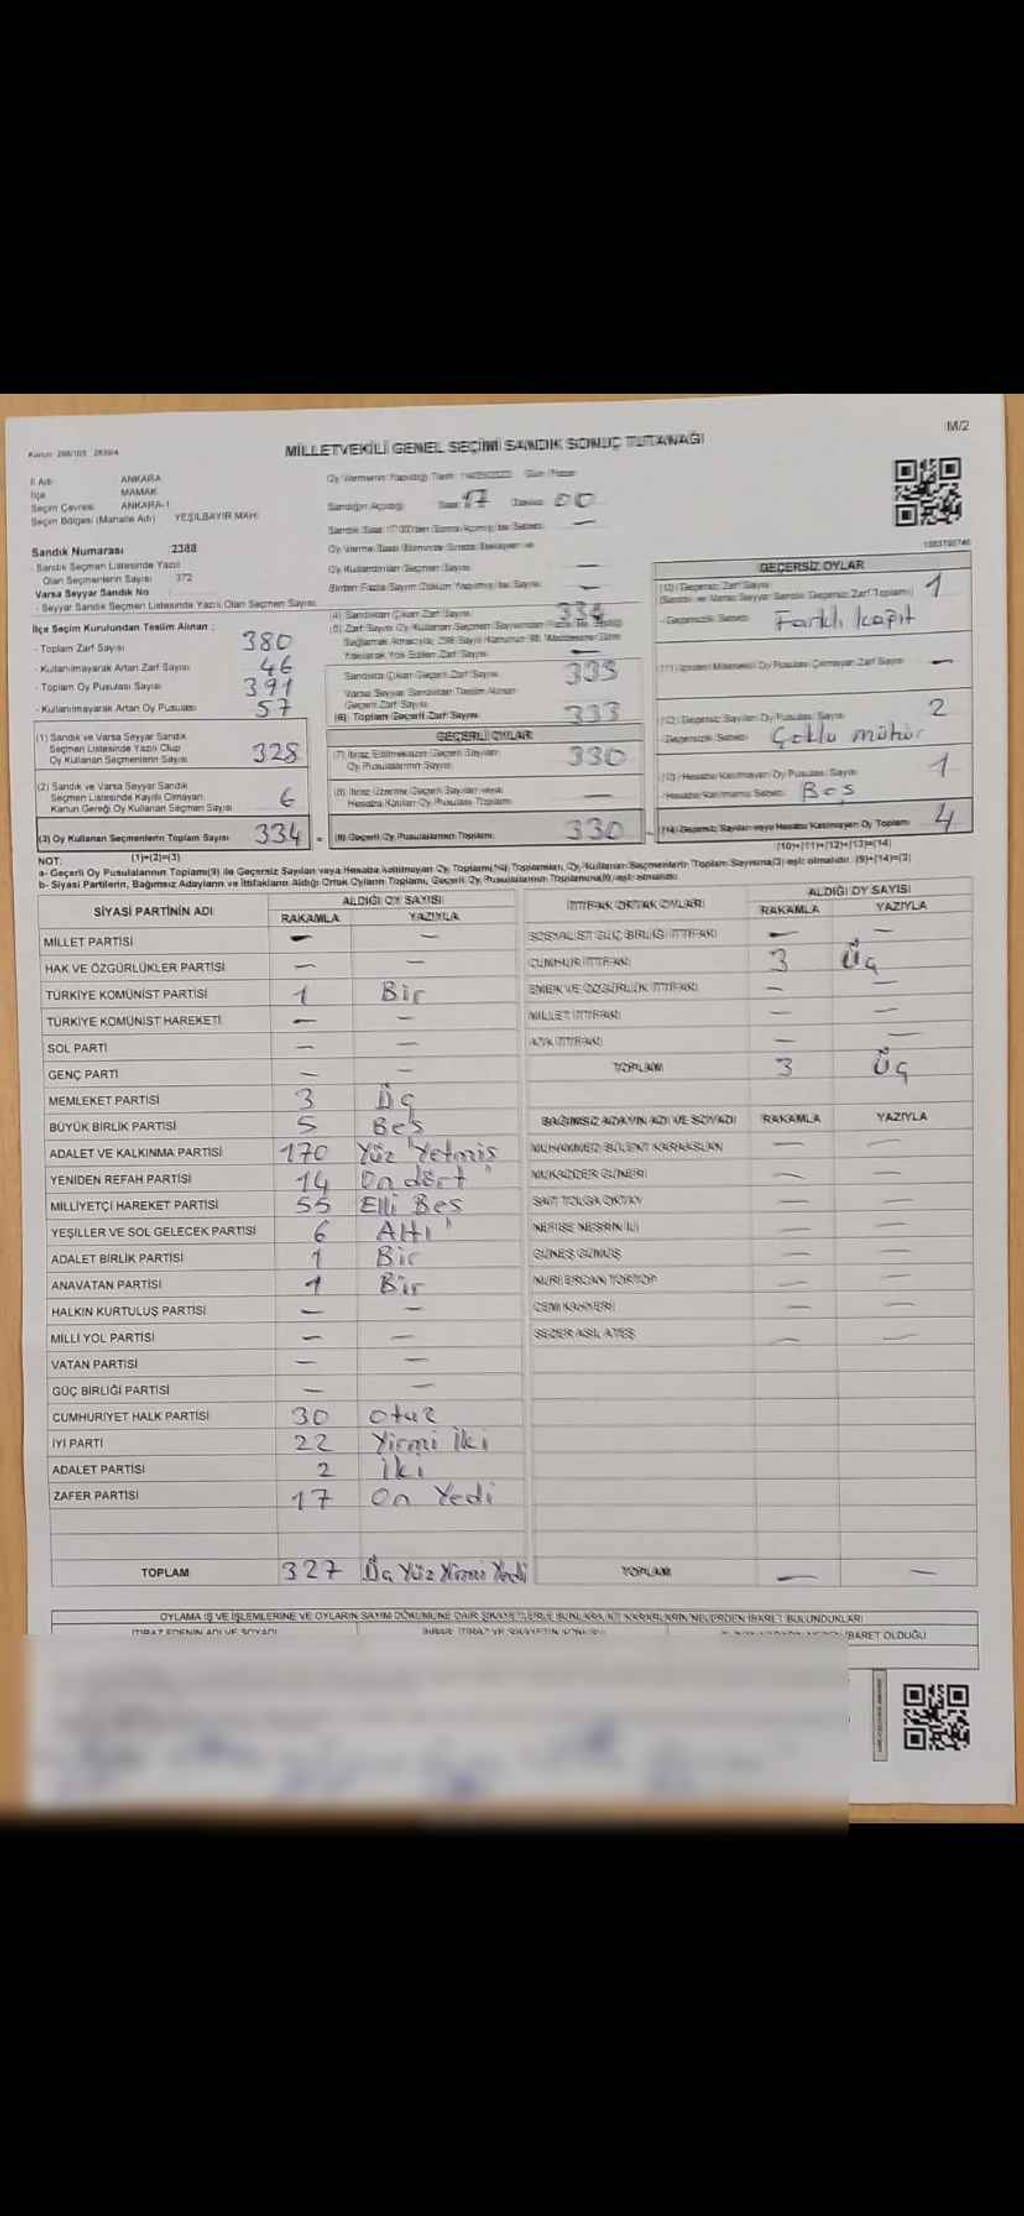 M/2
MİLLETVEKİLİ GENEL SEÇİMİ SANDIK SONUÇ TUTANAĞI
İl Adı ANKARA
İlçe MAMAK
Seçim Çevresi ANKARA-1
Seçim Bölgesi (Mahalle Adı) YEŞİLBAYIR MAH.
Oy Vermenin Yapıldığı Tarih Gün Pazar
Sandığın Açıldığı Saat 17 Dakika 00
Sandık Saat 17:00'den Sonra Açılmış İse Sebebi —
Oy Kullandırılan Seçmen Sayısı —
Birden Fazla Sayım Döküm Yapılmış İse Sayısı —
Sandık Numarası 2388
- Sandık Seçmen Listesinde Yazılı
Olan Seçmenlerin Sayısı 372
Varsa Seyyar Sandık No
- Seyyar Sandık Seçmen Listesinde Yazılı Olan Seçmen Sayısı
İlçe Seçim Kurulundan Teslim Alınan :
- Toplam Zarf Sayısı 380
- Kullanılmayarak Artan Zarf Sayısı 46
- Toplam Oy Pusulası Sayısı 391
- Kullanılmayarak Artan Oy Pusulası 57
(1) Sandık ve Varsa Seyyar Sandık
Seçmen Listesinde Yazılı Olup
Oy Kullanan Seçmenlerin Sayısı 328
(2) Sandık ve Varsa Seyyar Sandık
Seçmen Listesinde Kayıtlı Olmayan
Kanun Gereği Oy Kullanan Seçmen Sayısı 6
(3) Oy Kullanan Seçmenlerin Toplam Sayısı 334 =
(4) Sandıktan Çıkan Zarf Sayısı 334
Sandıkta Çıkan Geçerli Zarf Sayısı 333
Varsa Seyyar Sandıktan Teslim Alınan
Geçerli Zarf Sayısı
(6) Toplam Geçerli Zarf Sayısı 333
GEÇERLİ OYLAR
(7) İtiraz Edilmeksizin Geçerli Sayılan
Oy Pusulalarının Sayısı 330
(8) İtiraz Üzerine Geçerli Sayılan veya
Hesaba Katılan Oy Pusulası Toplamı —
(9) Geçerli Oy Pusulalarının Toplamı 330
GEÇERSİZ OYLAR
(10) Geçersiz Zarf Sayısı 1
(Sandık ve Varsa Seyyar Sandık Geçersiz Zarf Toplamı)
- Geçersizlik Sebebi Farklı kağıt
—
(12) Geçersiz Sayılan Oy Pusulası Sayısı 2
- Geçersizlik Sebebi Çoklu mühür
(13) Hesaba Katılmayan Oy Pusulası Sayısı 1
- Hesaba Katılmama Sebebi Boş
(14) Geçersiz Sayılan veya Hesaba Katılmayan Oy Toplamı 4
(10)+(11)+(12)+(13)=(14)
NOT: (1)+(2)=(3)
a- Geçerli Oy Pusulalarının Toplamı(9) ile Geçersiz Sayılan veya Hesaba Katılmayan Oy Toplamı(14) Toplamları, Oy Kullanan Seçmenlerin Toplam Sayısına(3) eşit olmalıdır. (9)+(14)=(3)
b- Siyasi Partilerin, Bağımsız Adayların ve İttifakların Aldığı Ortak Oyların Toplamı, Geçerli Oy Pusulalarının Toplamına(9) eşit olmalıdır.
SİYASİ PARTİNİN ADI ALDIĞI OY SAYISI
RAKAMLA YAZIYLA
MİLLET PARTİSİ — —
HAK VE ÖZGÜRLÜKLER PARTİSİ — —
TÜRKİYE KOMÜNİST PARTİSİ 1 Bir
TÜRKİYE KOMÜNİST HAREKETİ — —
SOL PARTİ — —
GENÇ PARTİ — —
MEMLEKET PARTİSİ 3 Üç
BÜYÜK BİRLİK PARTİSİ 5 Beş
ADALET VE KALKINMA PARTİSİ 170 Yüz Yetmiş
YENİDEN REFAH PARTİSİ 14 On dört
MİLLİYETÇİ HAREKET PARTİSİ 55 Elli Beş
YEŞİLLER VE SOL GELECEK PARTİSİ 6 Altı
ADALET BİRLİK PARTİSİ 1 Bir
ANAVATAN PARTİSİ 1 Bir
HALKIN KURTULUŞ PARTİSİ — —
MİLLİ YOL PARTİSİ — —
VATAN PARTİSİ — —
GÜÇ BİRLİĞİ PARTİSİ — —
CUMHURİYET HALK PARTİSİ 30 Otuz
İYİ PARTİ 22 Yirmi İki
ADALET PARTİSİ 2 İki
ZAFER PARTİSİ 17 On Yedi
TOPLAM 327 Üç Yüz Yirmi Yedi
İTTİFAK ORTAK OYLARI ALDIĞI OY SAYISI
RAKAMLA YAZIYLA
SOSYALİST GÜÇ BİRLİĞİ İTTİFAKI — —
CUMHUR İTTİFAKI 3 Üç
EMEK VE ÖZGÜRLÜK İTTİFAKI — —
MİLLET İTTİFAKI — —
ATA İTTİFAKI — —
TOPLAM 3 Üç
BAĞIMSIZ ADAYIN ADI VE SOYADI RAKAMLA YAZIYLA
MUHAMMED BÜLENT KARAASLAN — —
MUKADDER GÜNERİ — —
SAİT TOLGA OKTAY — —
NEFİSE NESRİN İLİ — —
GÜNEŞ GÜMÜŞ — —
NURİ ERCAN TORTOP — —
— —
— —
TOPLAM — —
OYLAMA İŞ VE İŞLEMLERİNE VE OYLARIN SAYIM DÖKÜMÜNE DAİR ŞİKAYETLERLE BUNLARA AİT KARARLARIN NELERDEN İBARET BULUNDUKLARI
İTİRAZ EDENİN ADI VE SOYADI
İBARET OLDUĞU